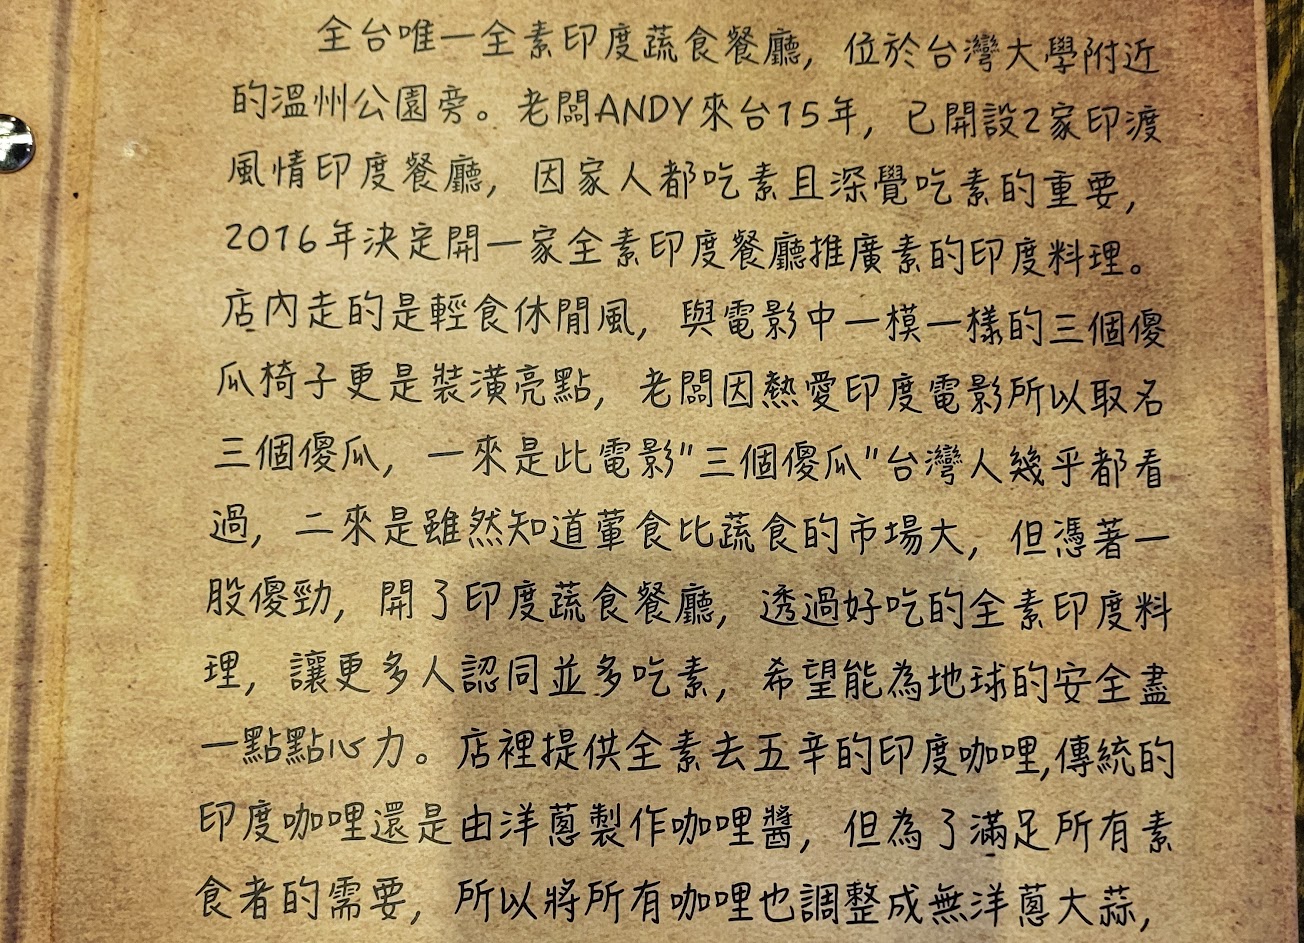 全台唯一全素印度蔬食餐廳，位於台灣大學附近
的溫州公園旁。老闆ANDY來台15年，已開設2家印渡
風情印度餐廳，因家人都吃素且深覺吃素的重要，
2016年決定開一家全素印度餐廳推廣素的印度料理。
店內走的是輕食休閒風，與電影中一模一樣的三個傻
瓜椅子更是裝潢亮點，老闆因熱愛印度電影所以取名
三個傻瓜，一來是此電影"三個傻瓜"台灣人幾乎都看
過，二來是雖然知道葷食比蔬食的市場大，但憑著一
股傻勁，開了印度蔬食餐廳，透過好吃的全素印度料
理，讓更多人認同並多吃素，希望能為地球的安全盡
一點點心力。店裡提供全素去五辛的印度咖哩,傳統的
印度咖哩還是由洋蔥製作咖哩醬，但為了滿足所有素
食者的需要，所以將所有咖哩也調整成無洋蔥大蒜，